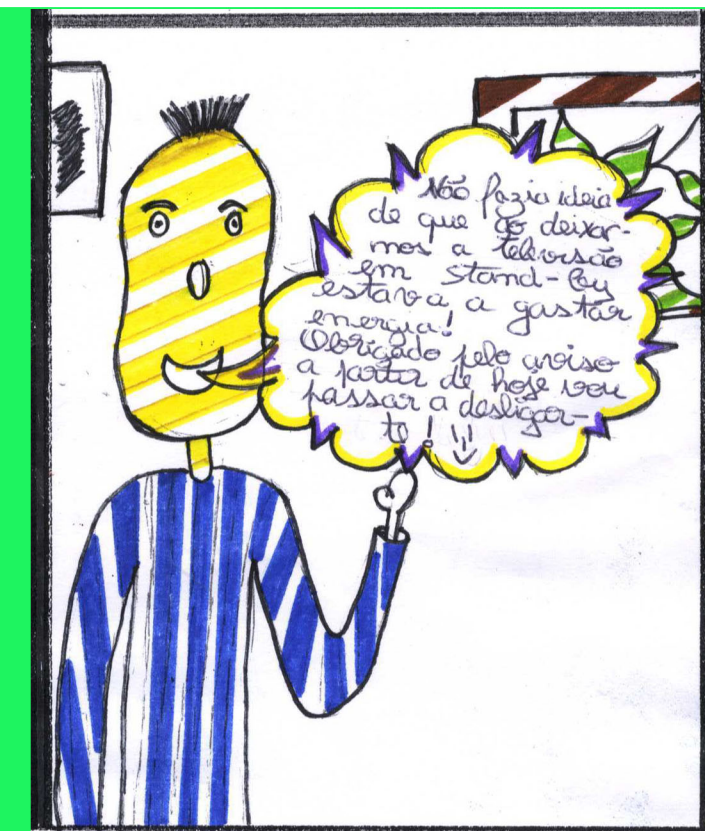 Não fazia ideia
de que ao deixar-
mos a televisão
em Stand-by
estava a gastar
energia!
Obrigado pelo aviso
a partir de hoje vou
passar a desligar-
te!